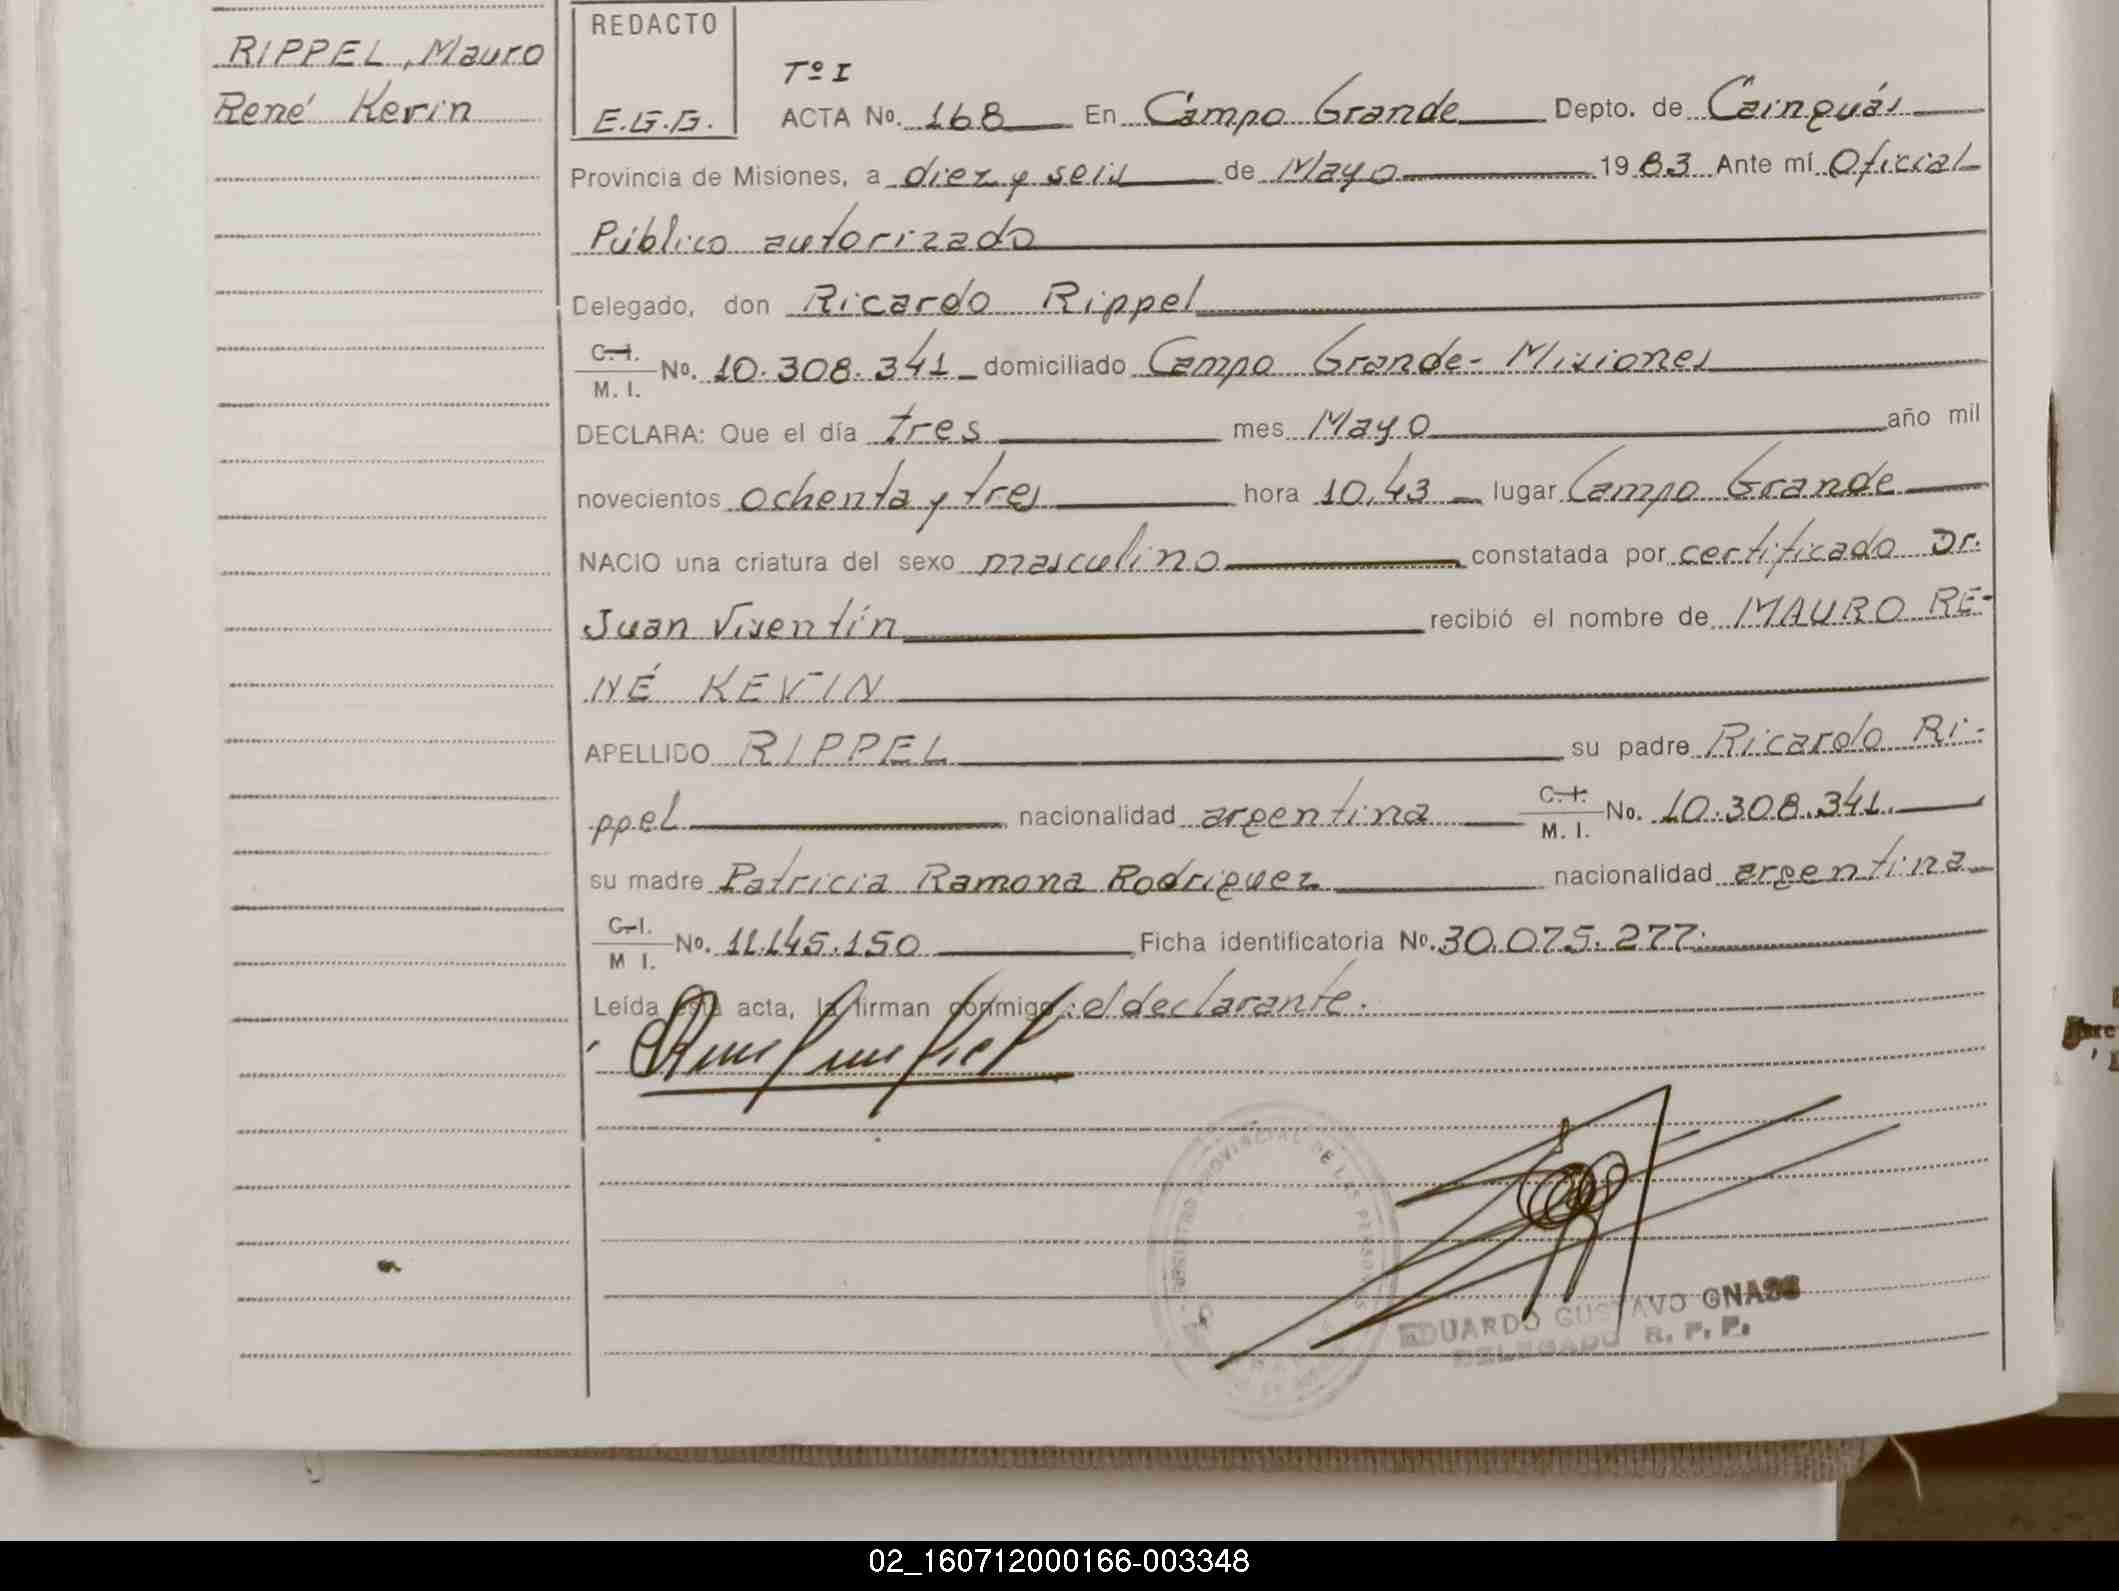 RIPPEL, Mauro
René Kevin
REDACTO
E.G.G.
Tº I
ACTA No. 168 En Campo Grande Depto. de Cainguás
Provincia de Misiones, a diez y seis de Mayo 1983 Ante mí Oficial
Público autorizado
Delegado, don Ricardo Rippel
C.I. M.I. No. 10.308.341 domiciliado Campo Grande - Misiones
DECLARA: Que el día tres mes Mayo año mil
novecientos ochenta y tres hora 10,43 lugar Campo Grande
NACIO una criatura del sexo masculino constatada por certificado Dr.
Juan Visentín recibió el nombre de MAURO RE-
NÉ KEVIN
APELLIDO RIPPEL su padre Ricardo Ri-
ppel nacionalidad argentina C.I. M.I. No. 10.308.341.
su madre Patricia Ramona Rodriguez nacionalidad argentina
C.I. M I. No. 11.145.150 Ficha identificatoria No. 30.075.277.
Leída esta acta, la firman conmigo: el declarante.
REGISTRO PROVINCIAL DE LAS PERSONAS
EDUARDO GUSTAVO GNASS
DELEGADO R. P. P.
02_160712000166-003348